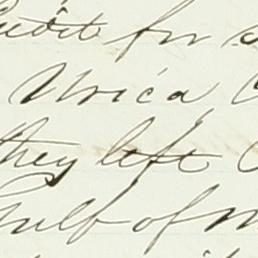 Credit for
Urica
they left
Gulf of M